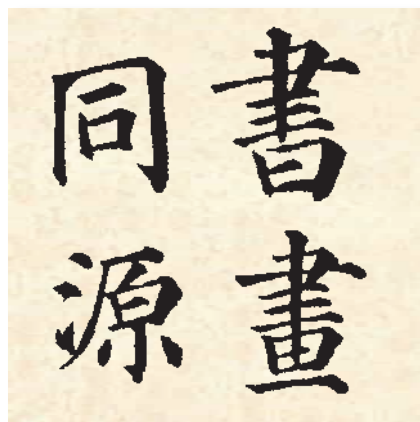 書畫
同源